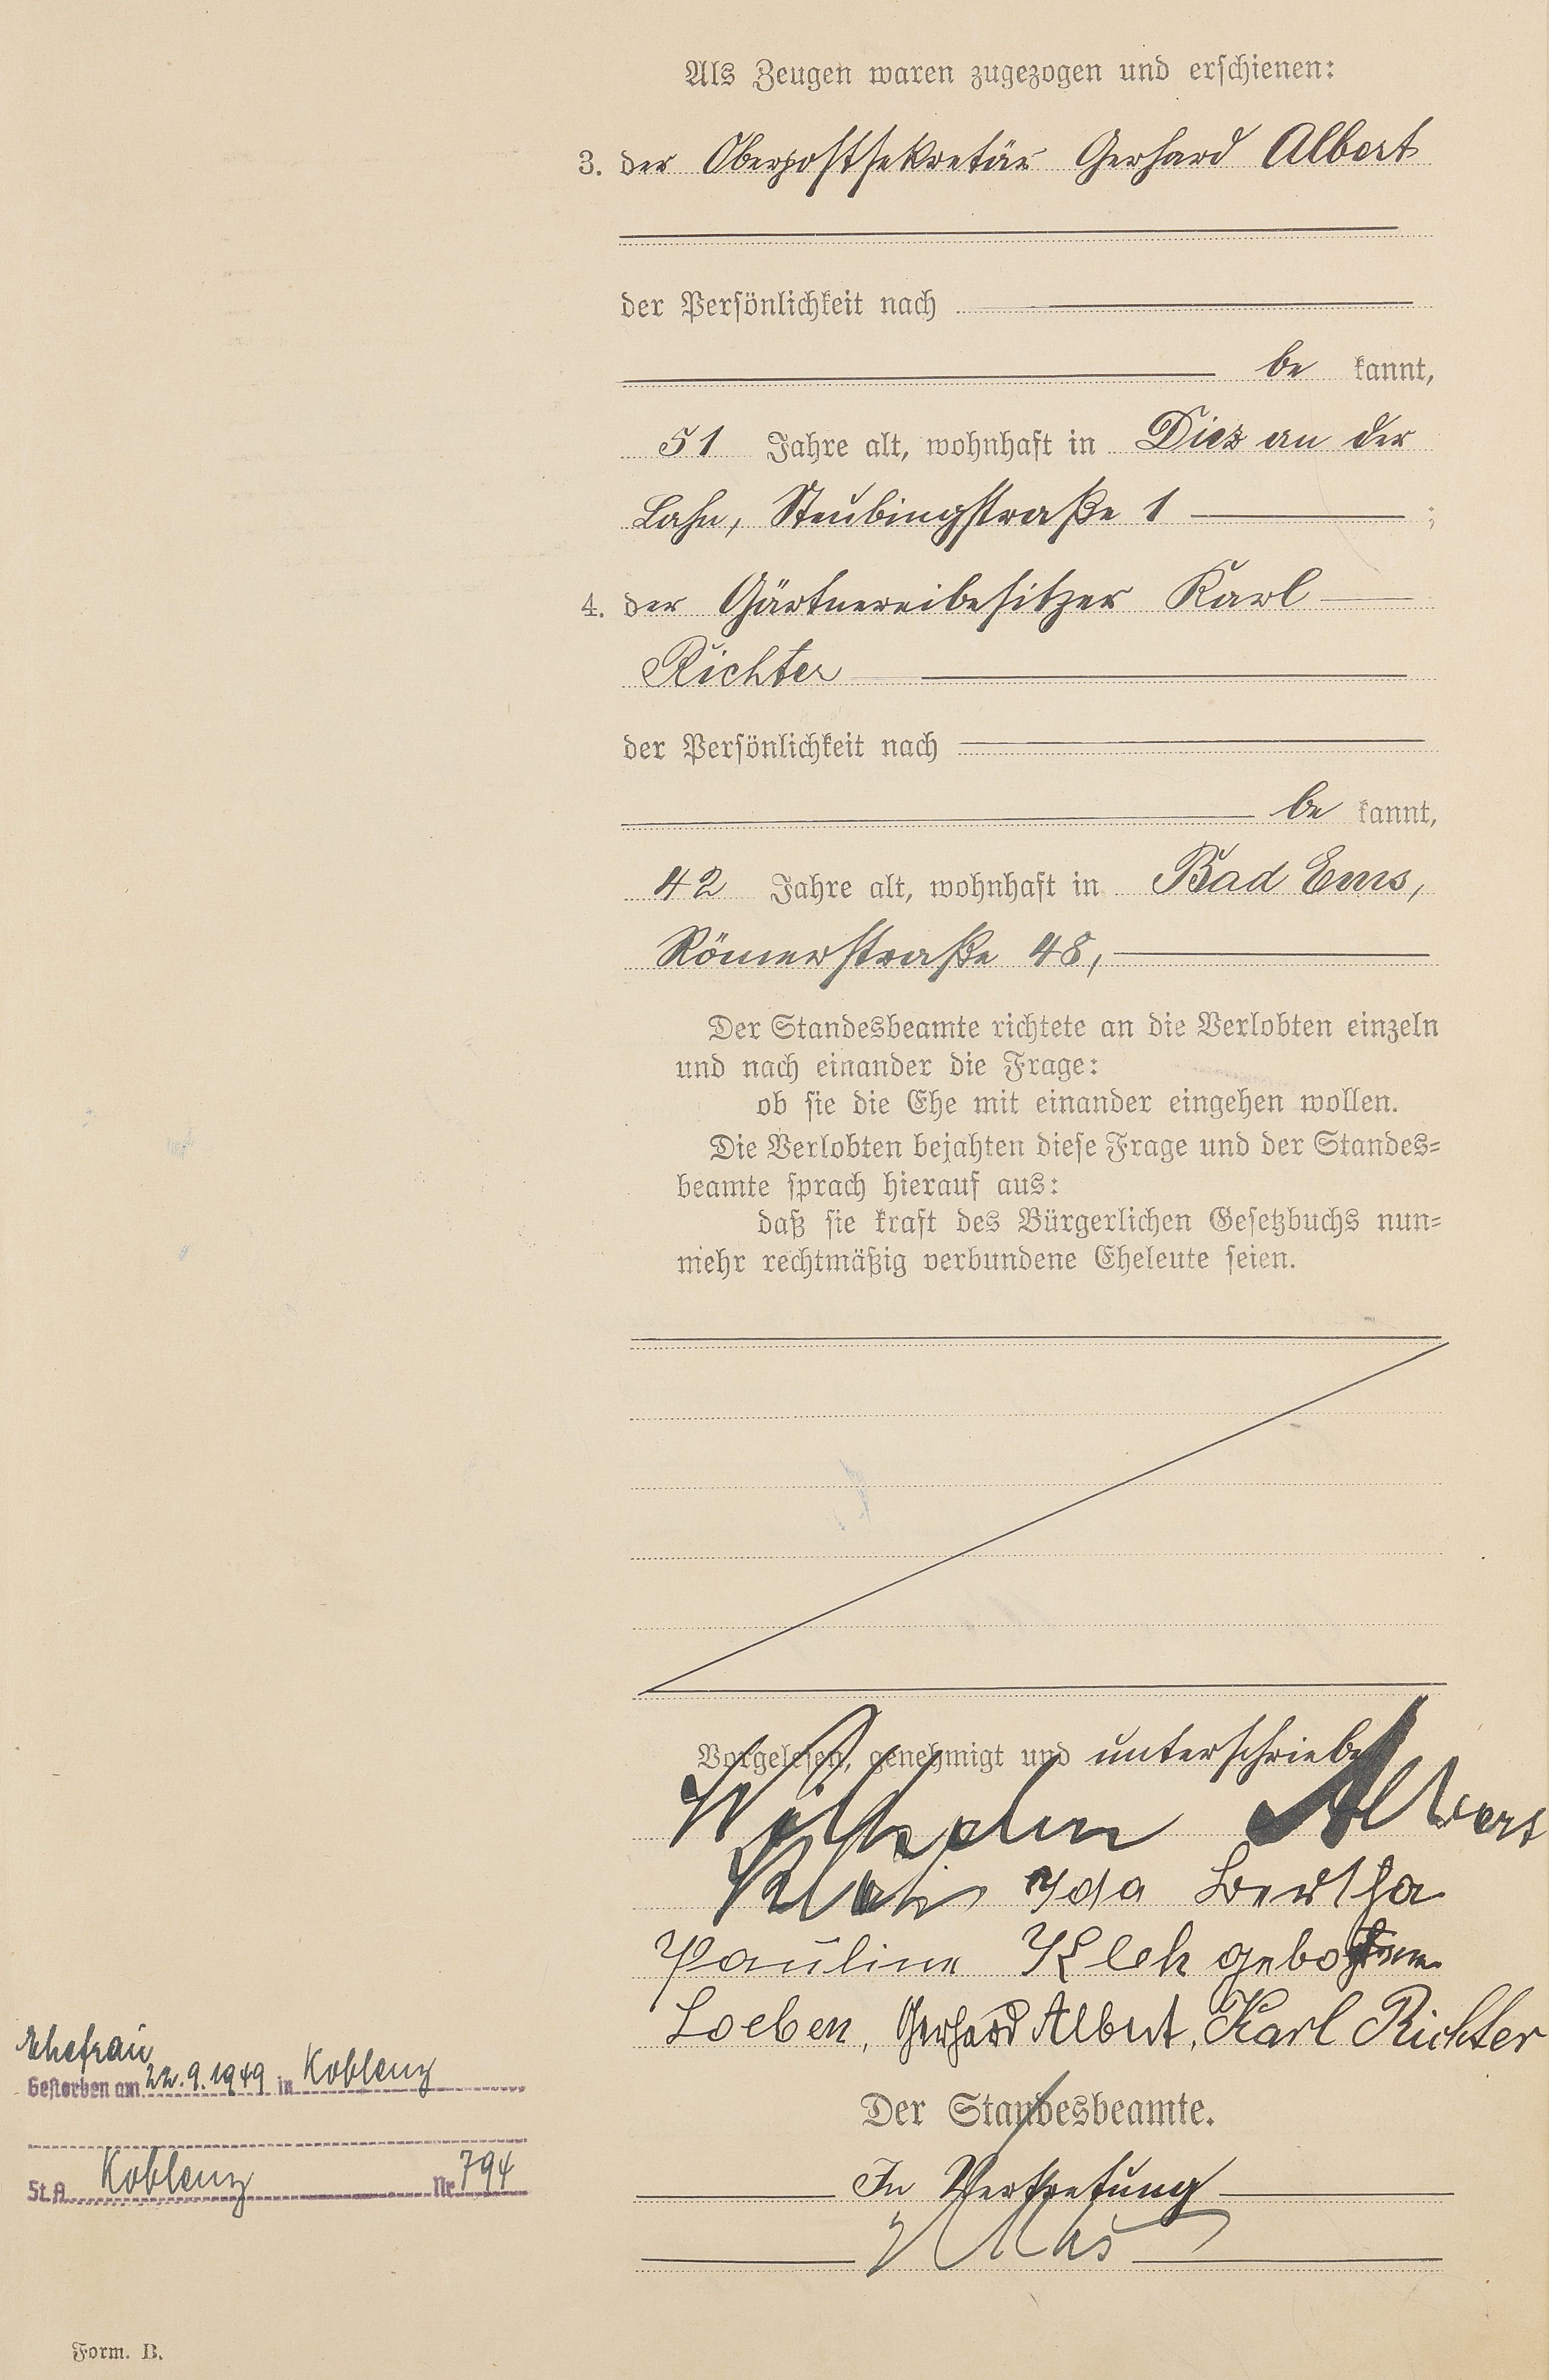 Als Zeugen waren zugezogen und erschienen:
3. der Oberpostsekretär Gerhard Albert
der Persönlichkeit nach
be kannt,
51 Jahre alt, wohnhaft in Diez an der
Lahn, Steubingstraße 1 ;
4. der Gärtnereibesitzer Karl
Richter
der Persönlichkeit nach
be kannt,
42 Jahre alt, wohnhaft in Bad Ems,
Römerstraße 48,
Der Standesbeamte richtete an die Verlobten einzeln
und nach einander die Frage:
ob sie die Ehe mit einander eingehen wollen.
Die Verlobten bejahten diese Frage und der Standes=
beamte sprach hierauf aus:
daß sie kraft des Bürgerlichen Gesetzbuchs nun=
mehr rechtmäßig verbundene Eheleute seien.
Vorgelesen, genehmigt und unterschrieben
Wilhelm Albert
Ida Bertha
Pauline geborene
Loeben, Gerhard Albert, Karl Richter
Ehefrau
Gestorben am 22.9.1949 in Koblenz
St.A. Koblenz Nr 794
Der Standesbeamte.
In Vertretung
Form. B.